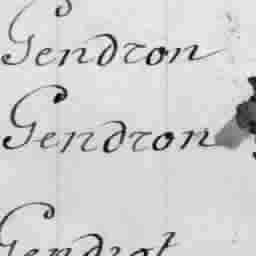 Gendron
Gendron
Gendrot